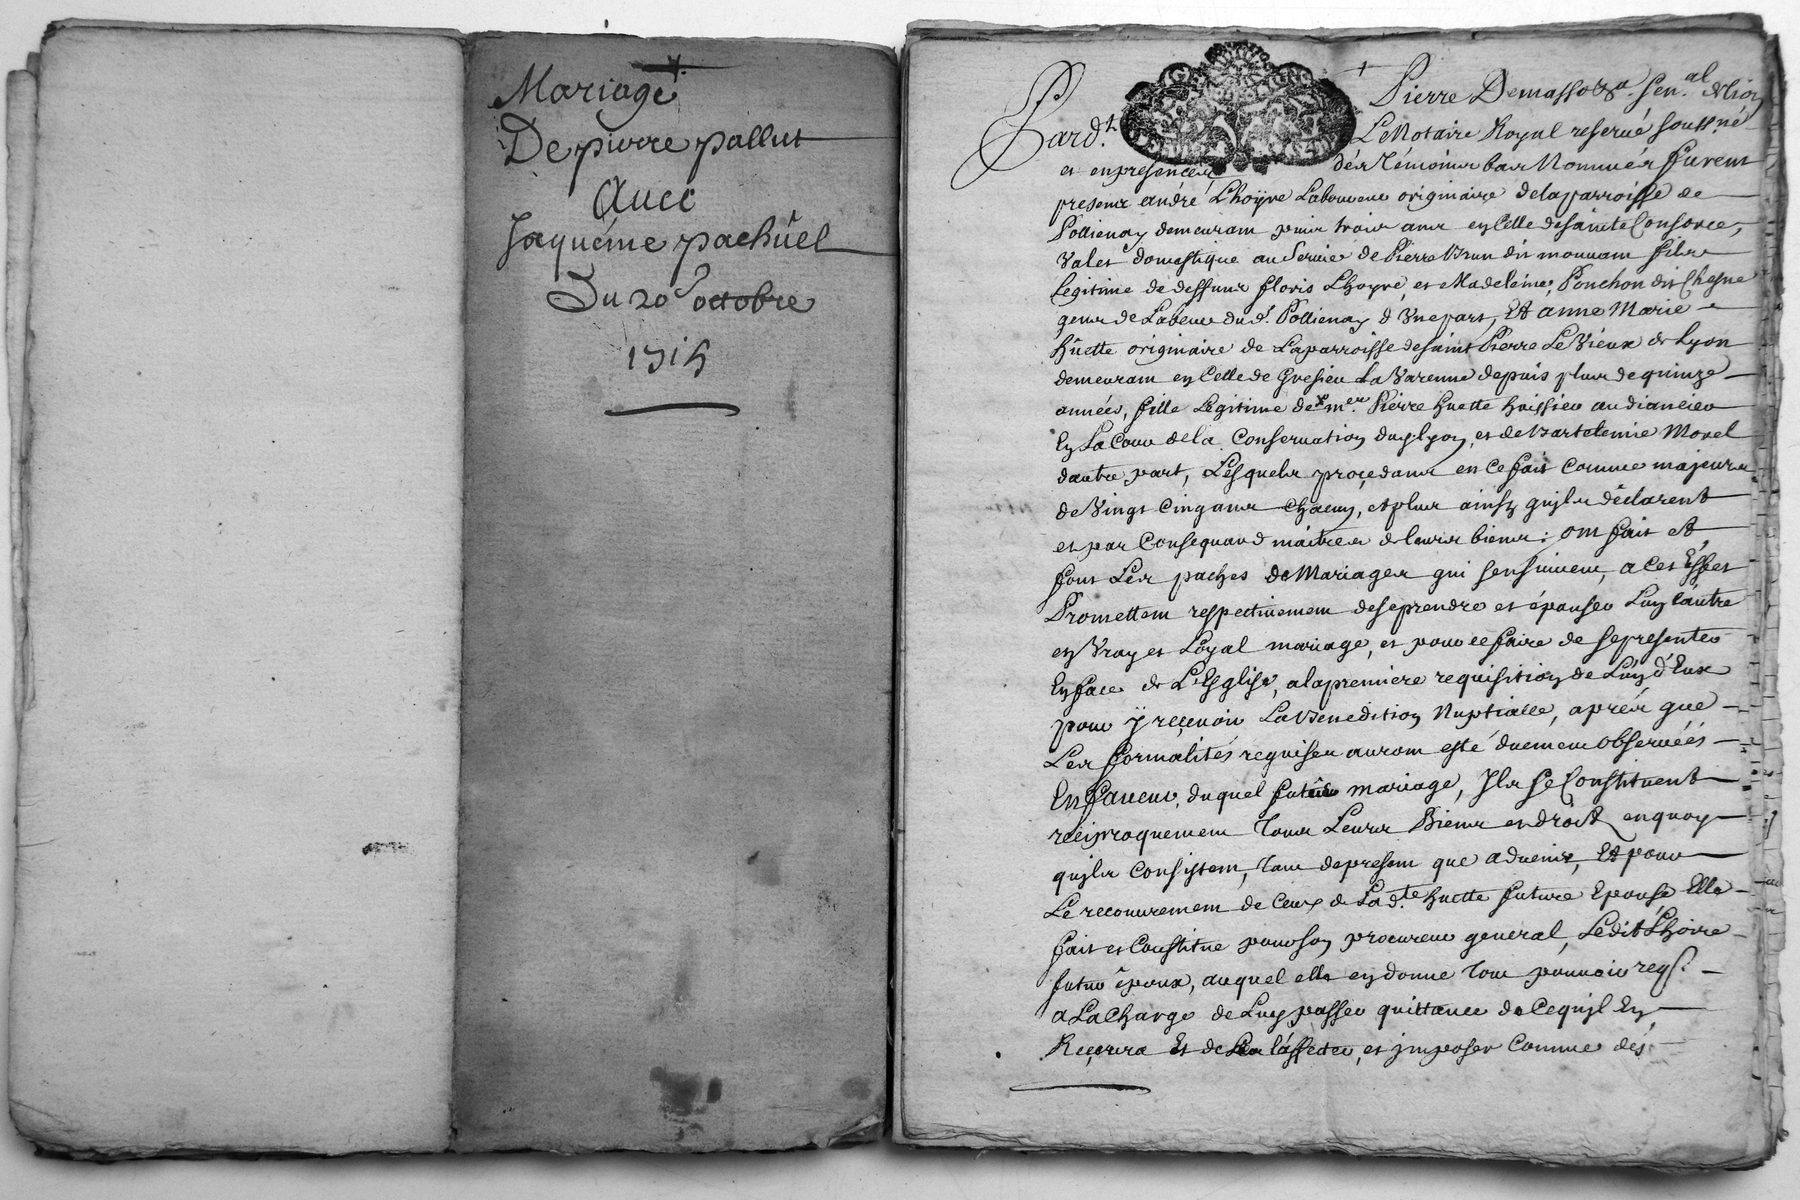 Mariage
De pierre pallut
Avec
Jaqueme pachûel
Du 20e octobre
1715
Pierre Demasso &a. Sen.al de Lion
Pard.t Le Notaire Royal reservé soussné
et en presence des Témoins bas Nommés furent
presens andré Lhoyre Laboureur originaire de la parroisse de
Pollienay demeurant puis trois ans en Celle de sainte Consorce,
Valet domestique au Service de Pierre Brun dit mouvant fils
Legitime de deffunt floris Lhoyre, et Madeleine Ponchon dit Chesne
gens de Labeur dud.t Pollienay d'Une part, Et anne Marie
hûette originaire de La parroisse de saint Pierre Le Vieux de Lyon
demeurant en Celle de Gresieu La Varenne depuis plus de quinze
années, fille Legitime de m.e Pierre huette huissier audiancier
En La Cour de la Conservation duylyon, et de Bartelemie Morel
dautre part, Lesquels procedant en ce fait Comme majeurs
de Vingt Cinq ans chacun, et plus ainsy quils déclarent
et par Consequand maitres de leurs biens: ont fait et
font Les paches de Mariages qui sensuivent, a Cet Effet
Promettent respectivement de se prendre et épouser Luy Lautre
en Vray et Loyal mariage, et pour ce faire de se presenter
En face de L'Esglise, a la premiere requisition de Luy d'Eux
pour y reçevoir La Benedition Nuptialle, aprés que
Les formalités requises auront esté duement observéés
En faveur, duquel futur mariage, Ils Se Constituent
reciproquement Tous Leurs Biens et droits en quoy
quils Consistent, Tant de present que advenir, Et pour
Le recouvrement de Ceux de Lad.te huette future Epouse Elle
fait et Constitue pour son procureur general, Ledit Lhoire
futur époux, auquel elle en donne Tout pouvoir reqs.
a La Charge de Luy passer quittance de Cequil En
Reçevra Et de Les l'assetter, et imposer Comme des